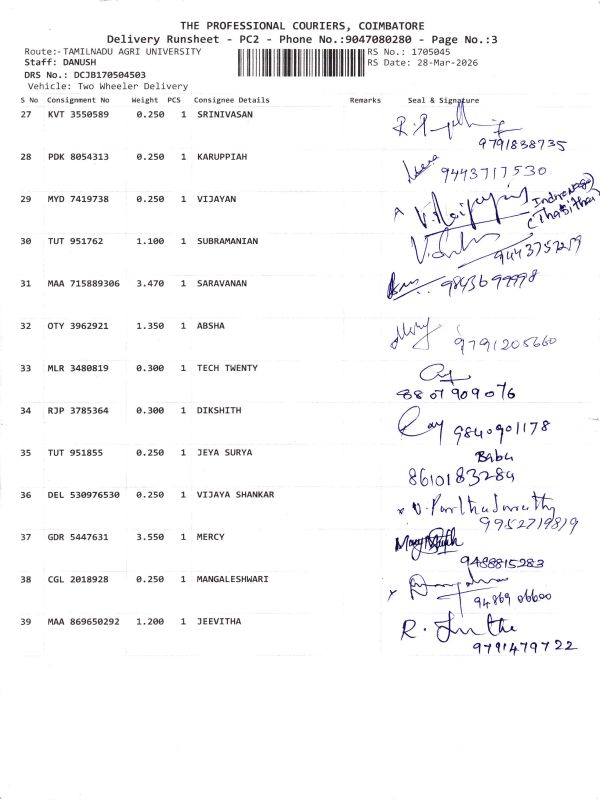 THE PROFESSIONAL COURIERS, COIMBATORE
Delivery Runsheet - PC2 - Phone No.:9047080280 - Page No.:3
Route:-TAMILNADU AGRI UNIVERSITY RS No.: 1705045
Staff: DANUSH RS Date: 28-Mar-2026
DRS No.: DCJB170504503
Vehicle: Two Wheeler Delivery
S No Consignment No Weight PCS Consignee Details Remarks Seal & Signature
27 KVT 3550589 0.250 1 SRINIVASAN
9791838735
28 PDK 8054313 0.250 1 KARUPPIAH
9443717530
29 MYD 7419738 0.250 1 VIJAYAN
30 TUT 951762 1.100 1 SUBRAMANIAN
31 MAA 715889306 3.470 1 SARAVANAN
9843699998
32 OTY 3962921 1.350 1 ABSHA
9791205660
33 MLR 3480819 0.300 1 TECH TWENTY
8807909076
34 RJP 3785364 0.300 1 DIKSHITH
9840901178
35 TUT 951855 0.250 1 JEYA SURYA
Babu
8610183284
36 DEL 530976530 0.250 1 VIJAYA SHANKAR
9952719819
37 GDR 5447631 3.550 1 MERCY
9488815283
38 CGL 2018928 0.250 1 MANGALESHWARI
94869 06600
39 MAA 869650292 1.200 1 JEEVITHA
9791479722